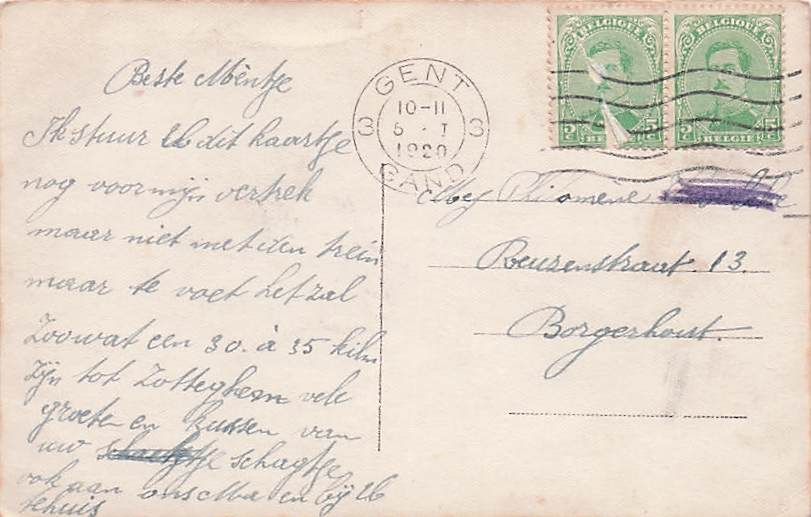 Beste Mèntje
Ik stuur U dit kaartje
nog voor mijn vertrek
maar niet met den trein
maar te voet het zal
Zoowat een 30. à 35 kilm
zijn tot Zotteghem vele
groeten en kussen van
uw schaeftje schagtje
ook aan ons Ma en bij U
tehuis
GENT
10-11
1920
GAND
BELGIQUE
5 5
BELGIË
BELGIQUE
5 5
BELGIË
Mej Philomene
Reuzenstraat. 13.
Borgerhout.